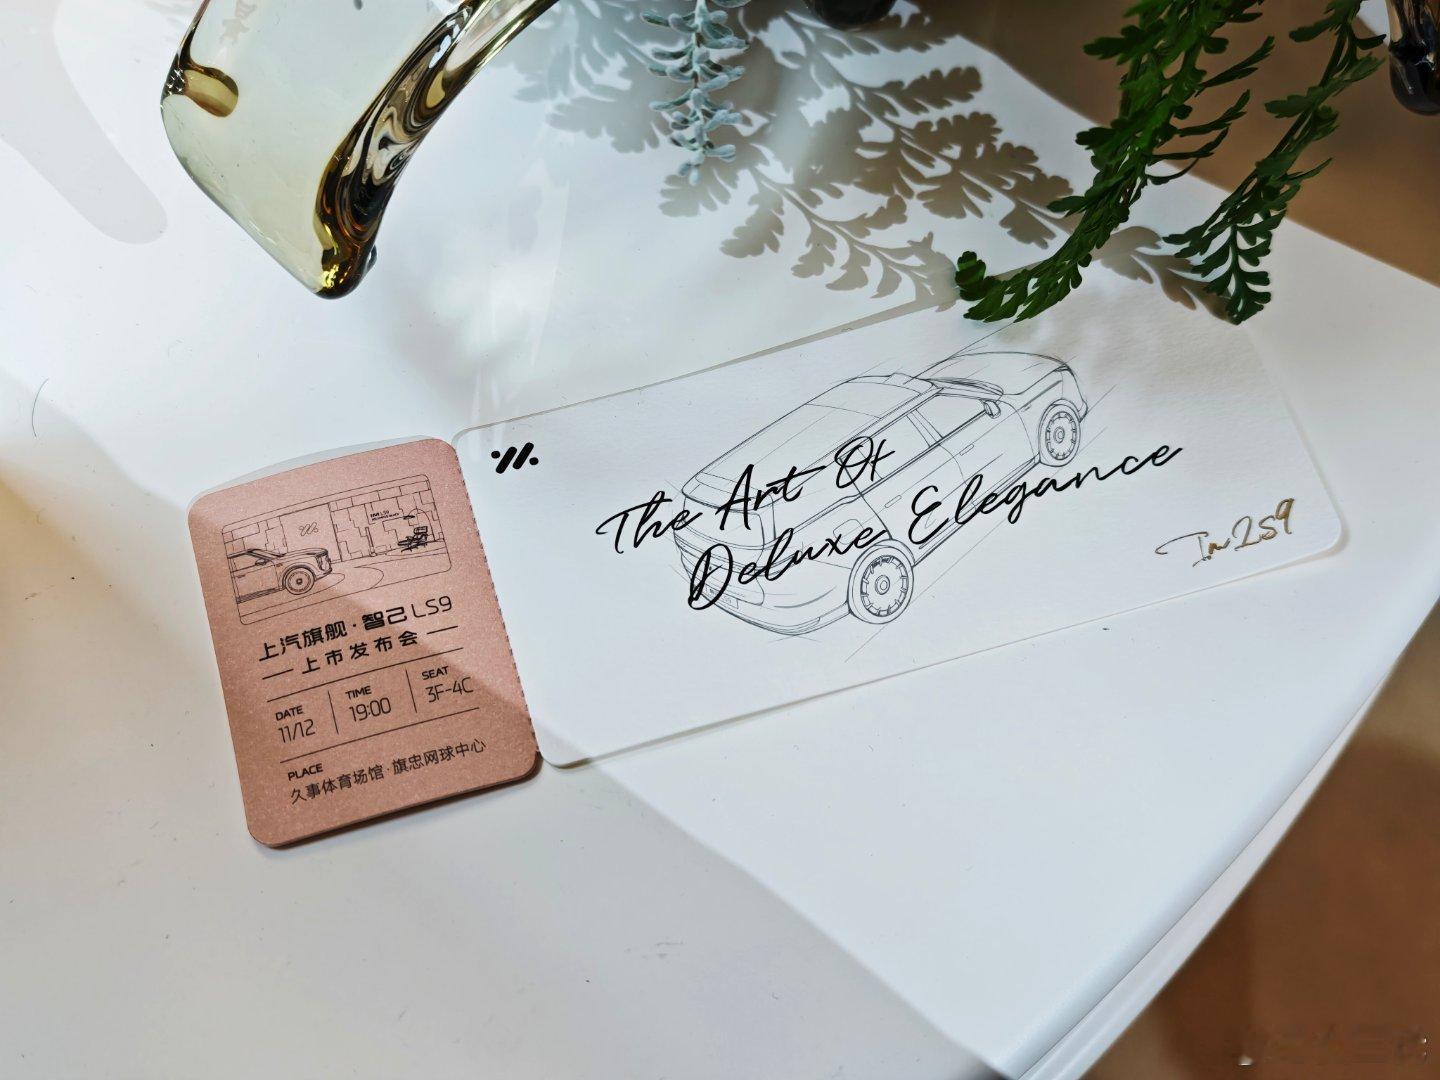 上汽旗舰·智己LS9
上市发布会
DATE
11/12
TIME
19:00
SEAT
3F-4C
PLACE
久事体育场馆·旗忠网球中心
The Art Of
Deluxe Elegance
Im LS9